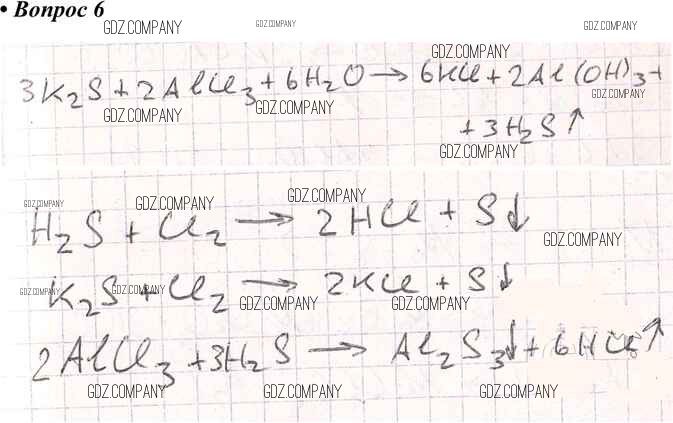 • Вопрос 6
GDZ.COMPANY GDZ.COMPANY GDZ.COMPANY
GDZ.COMPANY
3K₂S + 2AlCl₃ + 6H₂O → 6KCl + 2Al(OH)₃ +
GDZ.COMPANY GDZ.COMPANY GDZ.COMPANY
+ 3H₂S↑
GDZ.COMPANY
GDZ.COMPANY GDZ.COMPANY GDZ.COMPANY
H₂S + Cl₂ → 2HCl + S↓
GDZ.COMPANY
K₂S + Cl₂ → 2KCl + S↓
GDZ.COMPANY GDZ.COMPANY GDZ.COMPANY GDZ.COMPANY
2AlCl₃ + 3H₂S → Al₂S₃↓ + 6HCl↑
GDZ.COMPANY GDZ.COMPANY GDZ.COMPANY